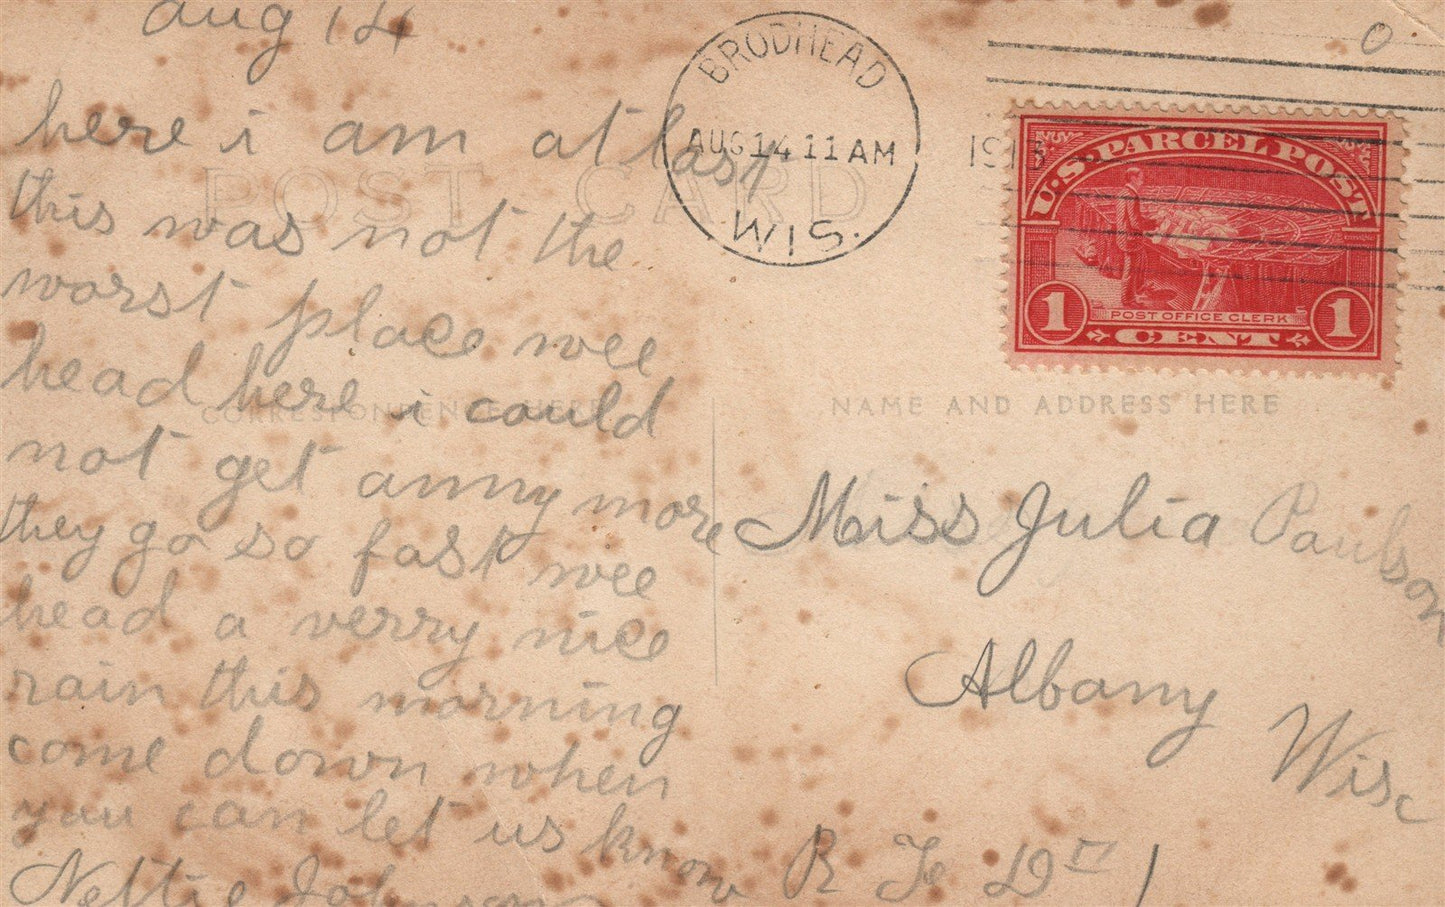 aug 14
here i am at last
this was not the
worst place wee
head here i could
not get anny more
they go so fast wee
head a verry nice
rain this morning
come down when
you can let us know
Nettie Johnson
POST CARD
CORRESPONDENCE HERE
BRODHEAD
AUG 14 11 AM
1913
WIS.
U.S. PARCEL POST
POST OFFICE CLERK
1 CENT 1
NAME AND ADDRESS HERE
Miss Julia Paulson
Albany Wisc
R Fe D 1
0